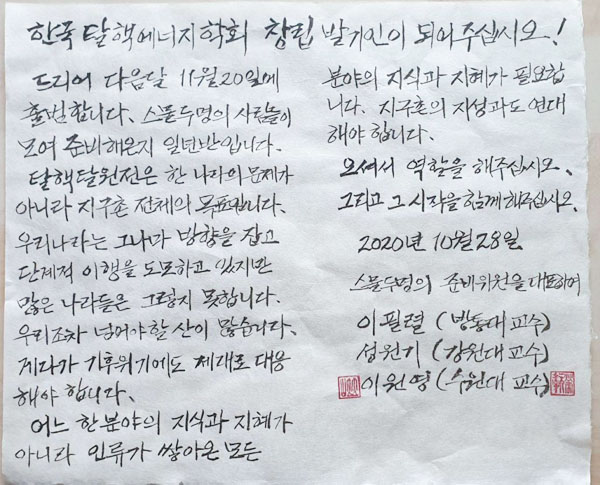 한국 탈핵에너지학회 창립 발기인이 되어주십시오!
드디어 다음달 11월20일에
출범합니다. 스물두명의 사람들이
모여 준비해온지 일년반입니다.
탈핵탈원전은 한 나라의 문제가
아니라 지구촌 전체의 목표입니다.
우리나라는 그나마 방향을 잡고
단계적 이행을 도모하고 있지만
많은 나라들은 그렇지 못합니다.
우리조차 넘어야할 산이 많습니다.
게다가 기후위기에도 제대로 대응
해야 합니다.
어느 한분야의 지식과 지혜가
아니라 인류가 쌓아온 모든
분야의 지식과 지혜가 필요합
니다. 지구촌의 지성과도 연대
해야 합니다.
오셔서 역할을 해주십시오.
그리고 그 시작을 함께 해주십시오.
2020년 10월 28일
스물두명의 준비위원을 대표하여
이필렬 (방통대 교수)
성원기 (강원대 교수)
이원영 (수원대 교수)